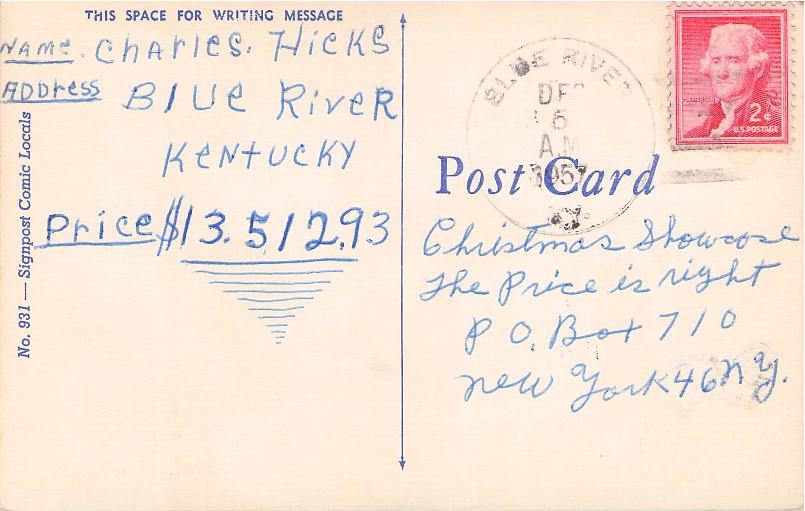 THIS SPACE FOR WRITING MESSAGE
Name. Charles. Hicks
Address Blue River
Kentucky
Price $13.512.93
No. 931 — Signpost Comic Locals
BLUE RIVER
A.M
1957
JEFFERSON
2¢
U.S. POSTAGE
Post Card
Christmas Showcase
The Price is right
P O. Box 710
New York 46 N Y.